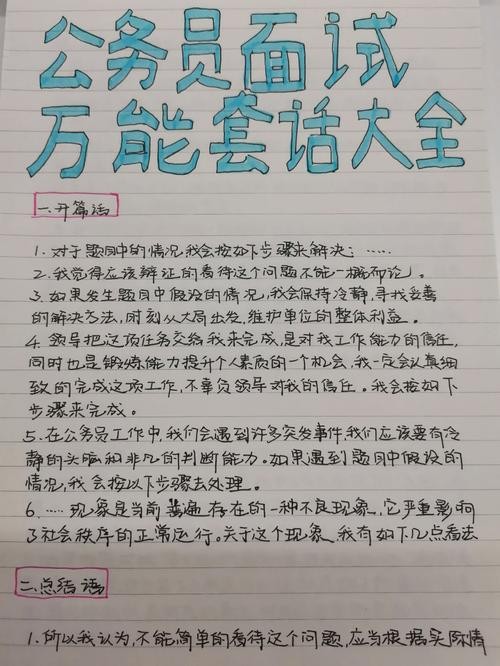 公务员面试
万能套话大全
一.开篇语
1. 对于题目中的情况,我会按如下步骤来解决:……
2. 我觉得应该辩证的看待这个问题不能一概而论。
3. 如果发生题目中假设的情况,我会保持冷静,寻找妥善
的解决方法,时刻从大局出发,维护单位的整体利益。
4. 领导把这项任务交给我来完成,是对我工作能力的信任,
同时也是锻炼能力提升个人素质的一个机会,我一定会认真细
致的完成这项工作,不辜负领导对我的信任。我会按如下
步骤来完成。
5. 在公务员工作中,我们会遇到许多突发事件,我们应该要有冷
静的头脑和非凡的判断能力。如果遇到题目中假设的
情况,我会按以下步骤去处理。
6. ……现象是当前普遍存在的一种不良现象,它严重影响
了社会秩序的正常运行。关于这个现象,我有如下几点看法
二.总结语
1. 所以我认为,不能简单的看待这个问题,应当根据实际情